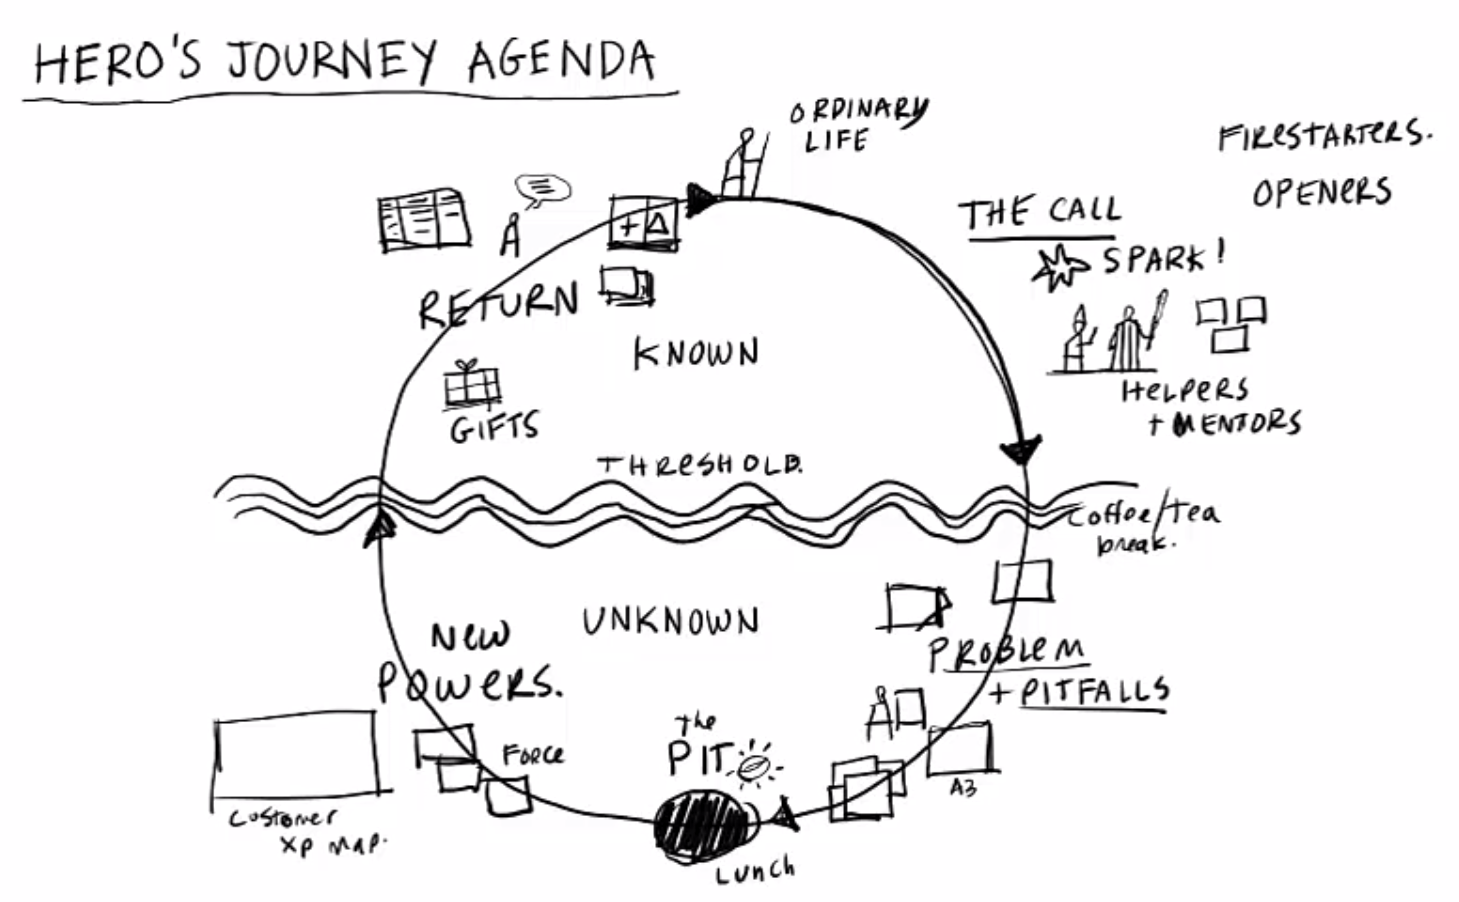 HERO'S JOURNEY AGENDA
ORDINARY
LIFE
FIRESTARTERS.
OPENERS
THE CALL
SPARK!
HELPERS
+ MENTORS
+ Δ
RETURN
KNOWN
GIFTS
THRESHOLD.
Coffee/tea
break.
UNKNOWN
NEW
POWERS.
PROBLEM
+ PITFALLS
the
PIT
FORCE
A3
Customer
XP Map.
LUNCH